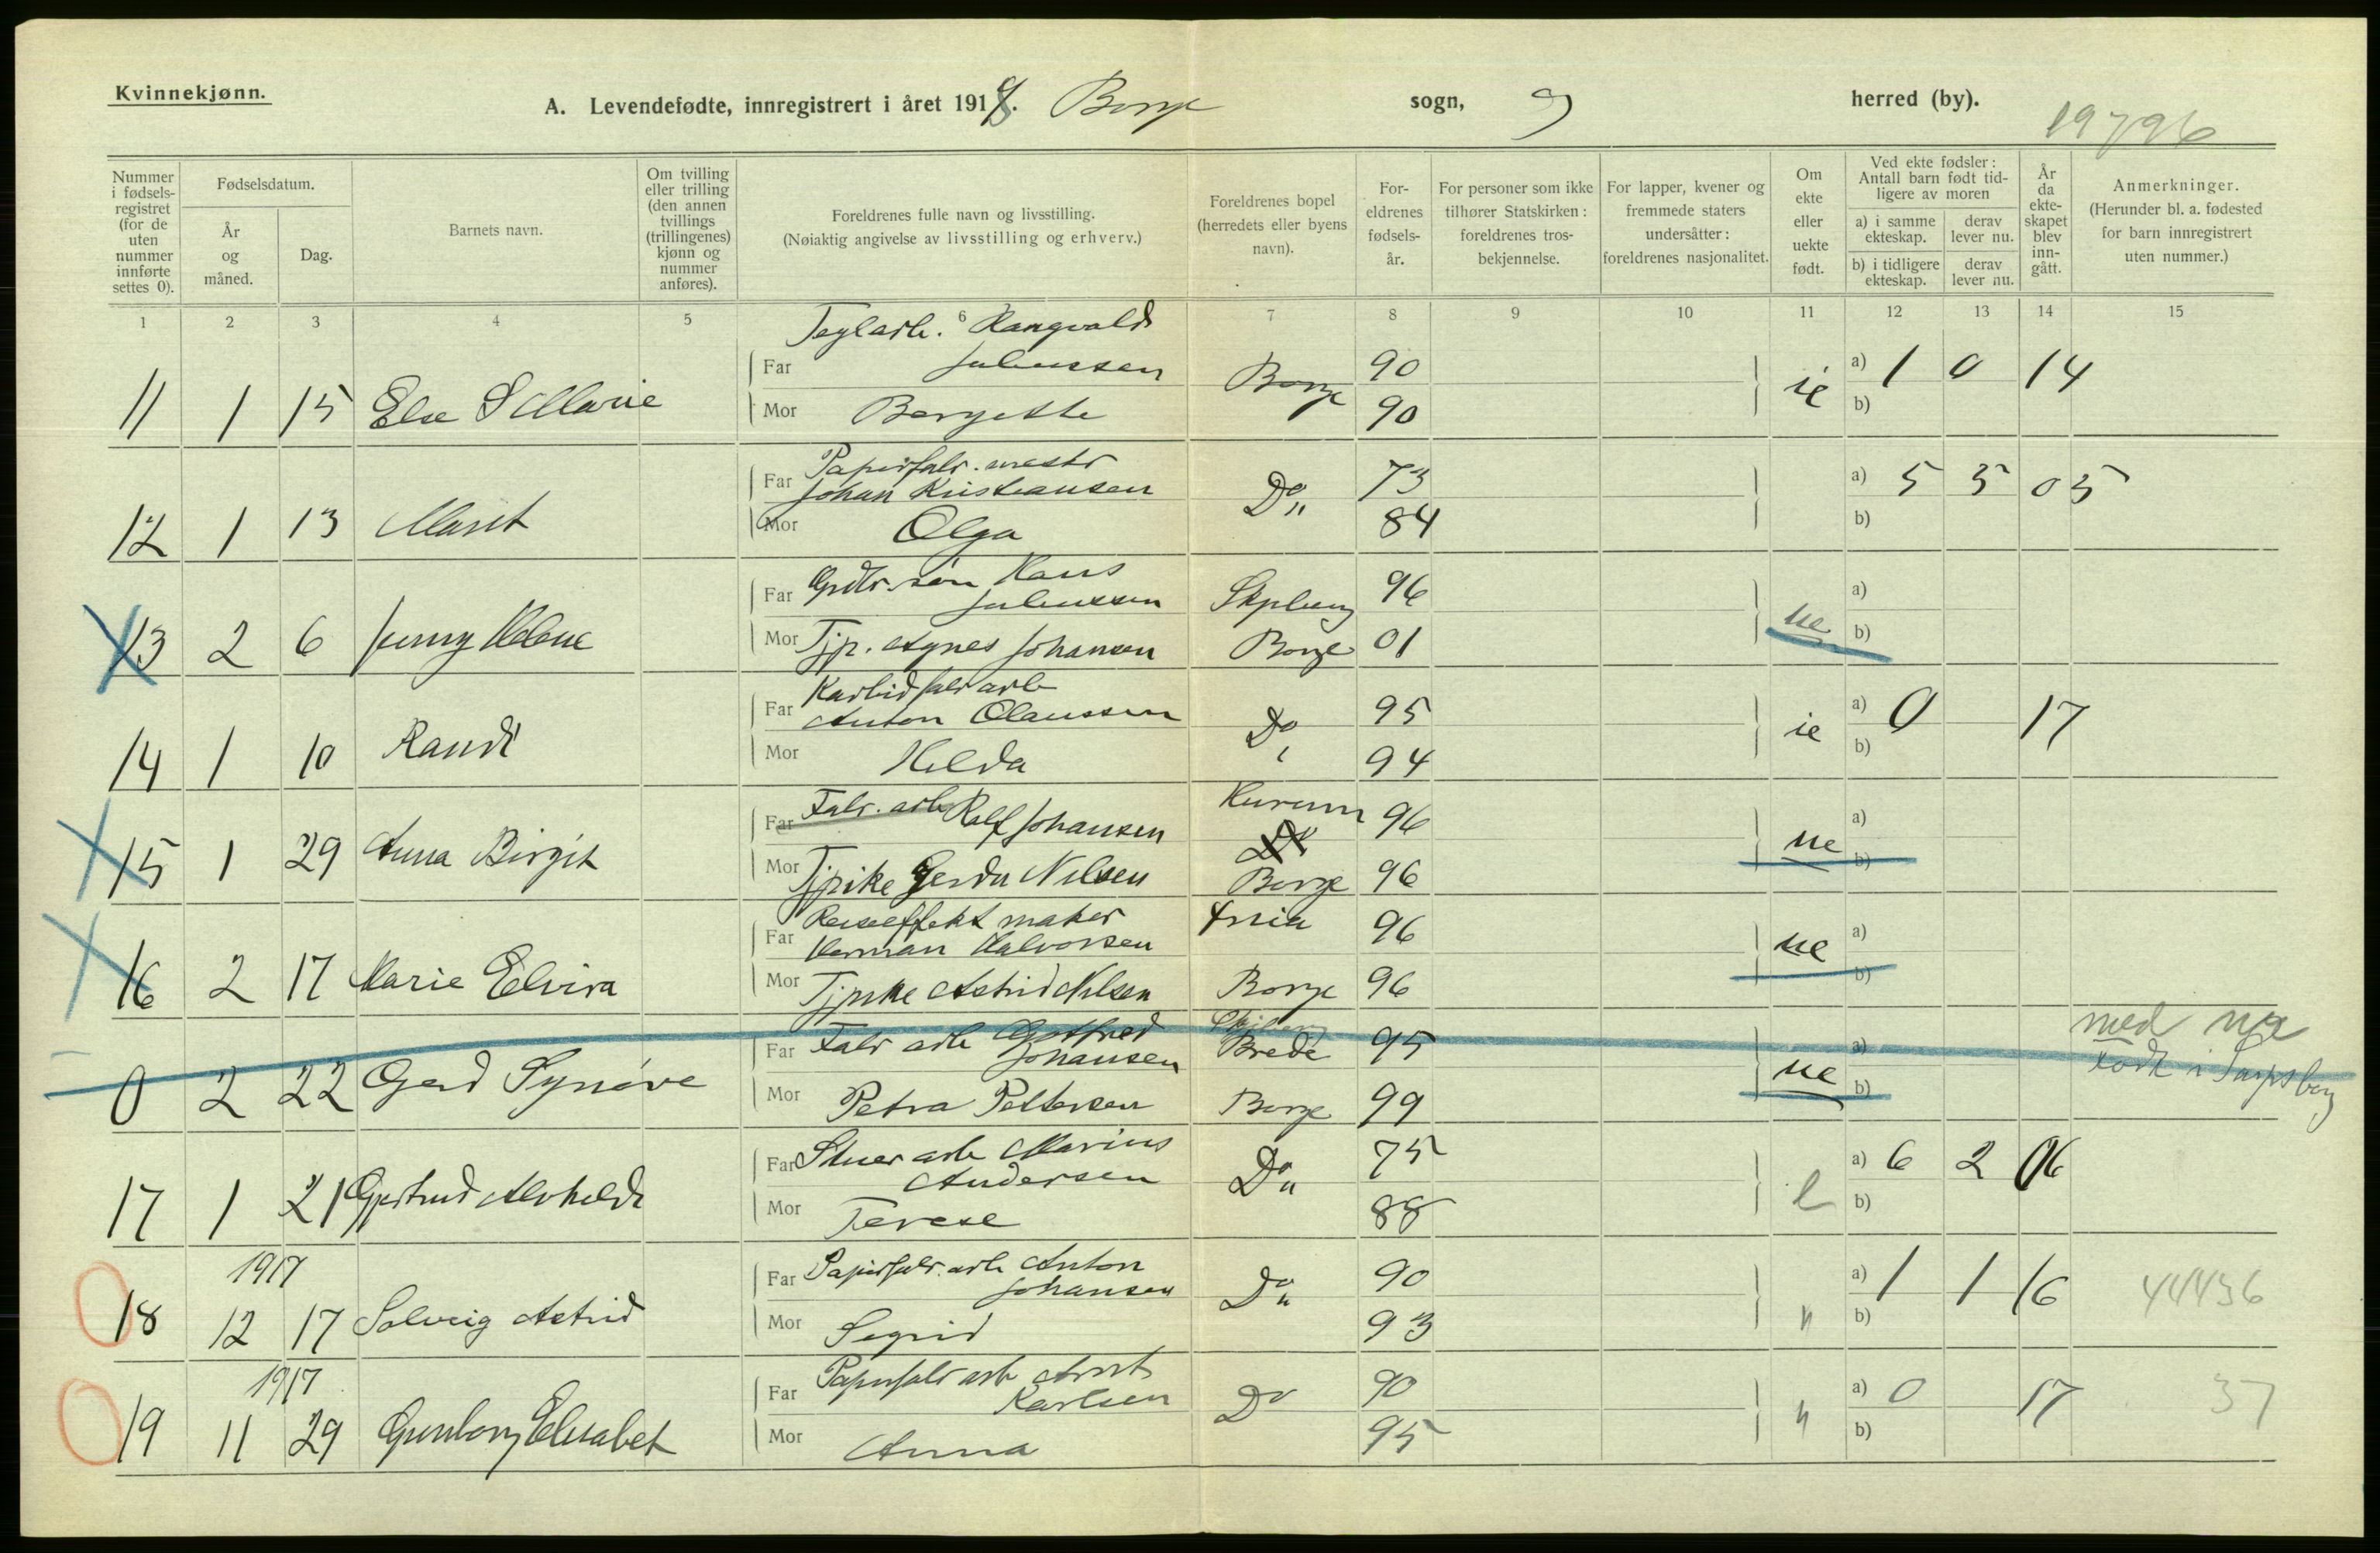 Kvinnekjønn.
A. Levendefødte, innregistrert i året 1918. Borge sogn, herred (by).
19796
Nummer i fødsels-registret (for de uten nummer innførte settes 0).
Fødselsdatum.
År og måned.
Dag.
Barnets navn.
Om tvilling eller trilling (den annen tvillings (trillingenes) kjønn og nummer anføres).
Foreldrenes fulle navn og livsstilling.
(Nøiaktig angivelse av livsstilling og erhverv.)
Foreldrenes bopel (herredets eller byens navn).
For-eldrenes fødsels-år.
For personer som ikke tilhører Statskirken: foreldrenes tros-bekjennelse.
For lapper, kvener og fremmede staters undersåtter: foreldrenes nasjonalitet.
Om ekte eller uekte født.
Ved ekte fødsler: Antall barn født tid-ligere av moren
a) i samme ekteskap.
derav lever nu.
b) i tidligere ekteskap.
derav lever nu.
År da ekte-skapet blev inn-gått.
Anmerkninger.
(Herunder bl. a. fødested for barn innregistrert uten nummer.)
1 2 3 4 5 6 7 8 9 10 11 12 13 14 15
Teglarb. Rangvald
Far Juliussen 90
11 1 15 Else S Marie Borge ie a) 1 0 14
Mor Bergitte 90 b)
Papirfabr. mestr
Far Johan Kristiansen 73 a) 5 5 05
12 1 13 Marit Do
Mor Olga 84 b)
Far Grdbr. søn Hans Juliussen Skjeberg 96 a)
13 2 6 Jenny Helene ue
Mor Tjp. Agnes Johansen Borge 01 b)
Karbidfabr arb
Far Anton Olaussen 95 a) 0 17
14 1 10 Randi Do ie
Mor Hilda 94 b)
Far Fabr. arb Rolf Johansen Hurum 96 a)
Do
15 1 29 Anna Birgit ue
Mor Tjpike Gerda Nilsen Borge 96 b)
Reiseeffekt maker
Far Herman Halvorsen Kria 96 a)
16 2 17 Marie Elvira ue
Mor Tjpike Astrid Nilsen Borge 96 b)
Skjeberg
Far Fabr arb Gotfred Johansen Brede 95 a) med
0 2 22 Gerd Synøve ue født i Sarpsborg
Mor Petra Pettersen Borge 99 b)
Far Stuer arb Marius Andersen 75 a) 6 2 06
17 1 21 Gjertrud Alvhilde Do e
Mor Terese 88 b)
1917
Far Papirfabr. arb Anton Johansen 90 a) 1 1 16 44436
18 12 17 Solveig Astrid Do "
Mor Sigrid 93 b)
1917
Far Papirfabr arb Arnt Karlsen 90 a) 0 17 37
19 11 29 Gunborg Elisabet Do "
Mor Anna 95 b)